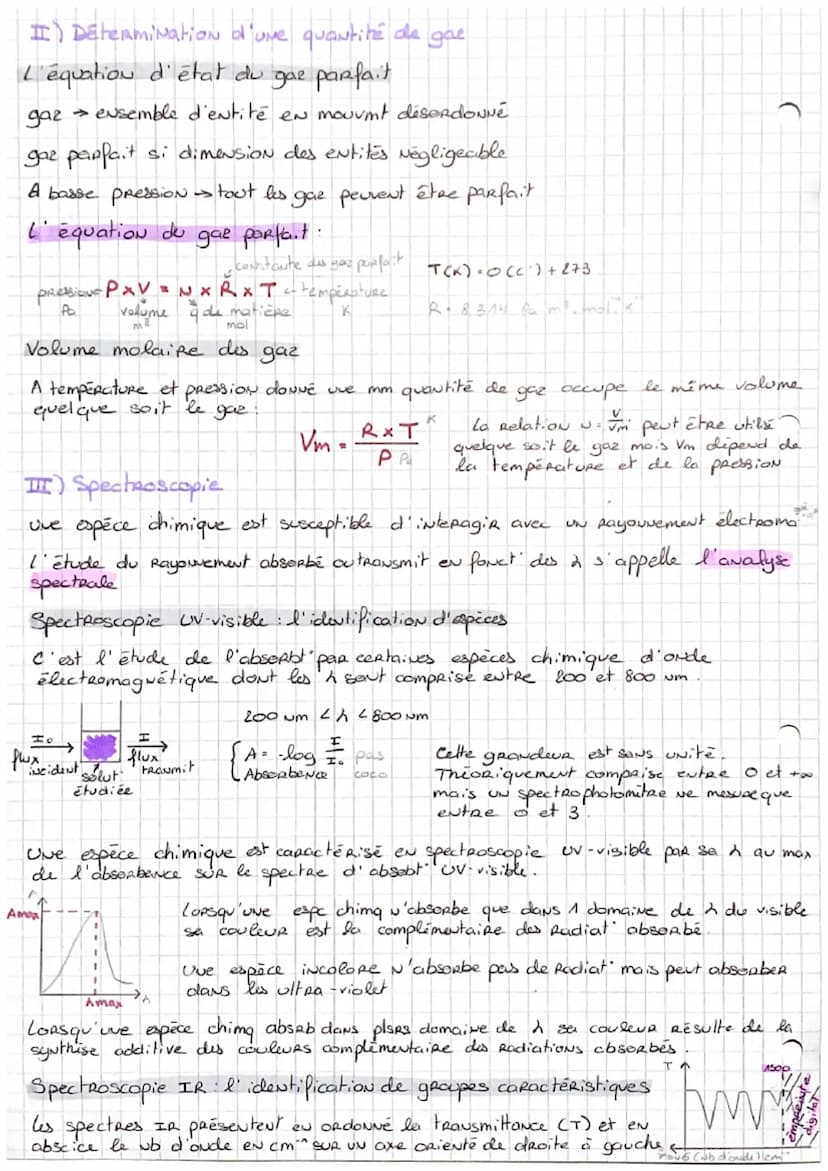 II) Détermination d'une quantité de gaz
L'équation d'état du gaz parfait
gaz → ensemble d'entité en mouvmt désordonné
gaz parfait si dimension des entités négligeable
A basse pression → tout les gaz peuvent être parfait
L'équation du gaz parfait :
constante des gaz parfait
T(K) = θ (C°) + 273
pression P x V = N x R x T ← température
Pa volume q de matière K
m³ mol
R = 8,314 Pa m³. mol⁻¹ K⁻¹
Volume molaire des gaz
A température et pression donné une mm quantité de gaz occupe le même volume
quelque soit le gaz :
Vm = R x T / P
K
Pa
La relation n = V/Vm peut être utilisé
quelque soit le gaz mais Vm dépend de
la température et de la pression
III) Spectroscopie
une espèce chimique est susceptible d'interagir avec un rayonnement électroma
L'étude du rayonnement absorbé ou transmit en fonct° des λ s'appelle l'analyse
spectrale
Spectroscopie UV-visible : l'identification d'espèces
C'est l'étude de l'absorbt° par certaines espèces chimique d'onde
électromagnétique dont les λ sont comprise entre 200 et 800 nm.
200 nm < λ < 800 nm
I₀ I
flux incident
flux transmit
solut° étudiée
A = -log I/I₀ pas
Absorbence coco
Cette grandeur est sans unité.
Théoriquement comprise entre 0 et +∞
mais un spectrophotomètre ne mesure que
entre 0 et 3.
Une espèce chimique est caractérisé en spectroscopie UV-visible par sa λ au max
de l'absorbence sur le spectre d'absobt° UV-visible.
A
Amax
λmax
λ
Lorsqu'une espc chimq n'absorbe que dans 1 domaine de λ du visible
sa couleur est la complémentaire des radiat° absorbé.
Une espèce incolore n'absorbe pas de radiat° mais peut absorber
dans les ultra-violet
Lorsqu'une espèce chimq absrb dans plsrs domaine de λ sa couleur résulte de la
synthèse additive des couleurs complémentaire des radiations absorbés.
Spectroscopie IR : l'identification de groupes caractéristiques
Les spectres IR présentent en ordonné la transmittance (T) et en
abscice le nb d'onde en cm⁻¹ sur un axe orienté de droite à gauche
T
1500
empreinte
digital
(nb d'onde) cm⁻¹